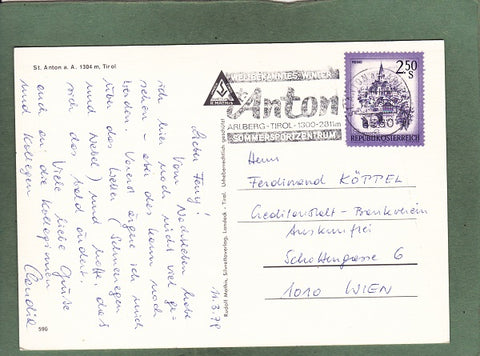 St. Anton a. A. 1304 m, Tirol
Liebe Ferry!
Vom Nachtleben habe
ich hier noch nicht viel ge-
sehen - aber das kann noch
werden. Vorerst ärgere ich mich
über das Wetter (Schneeregen
und Nebel) und hoffe, daß
sich das bald ändert.
Viele liebe Grüße
auch an die Kolleginnen
und Kollegen
Claudia
11.3.78
596
Rudolf Mathis, Silvrettaverlag, Landeck - Tirol. Urheberrechtlich geschützt
R. MATHIS
WELTBEKANNTES WINTER
St. Anton
ARLBERG-TIROL·1300-2811m
SOMMERSPORTZENTRUM
2.50
S
REPUBLIK ÖSTERREICH
Herrn
Ferdinand KÖPPEL
Creditanstalt - Bankverein
Auskunftei
Schottengasse 6
1010 WIEN